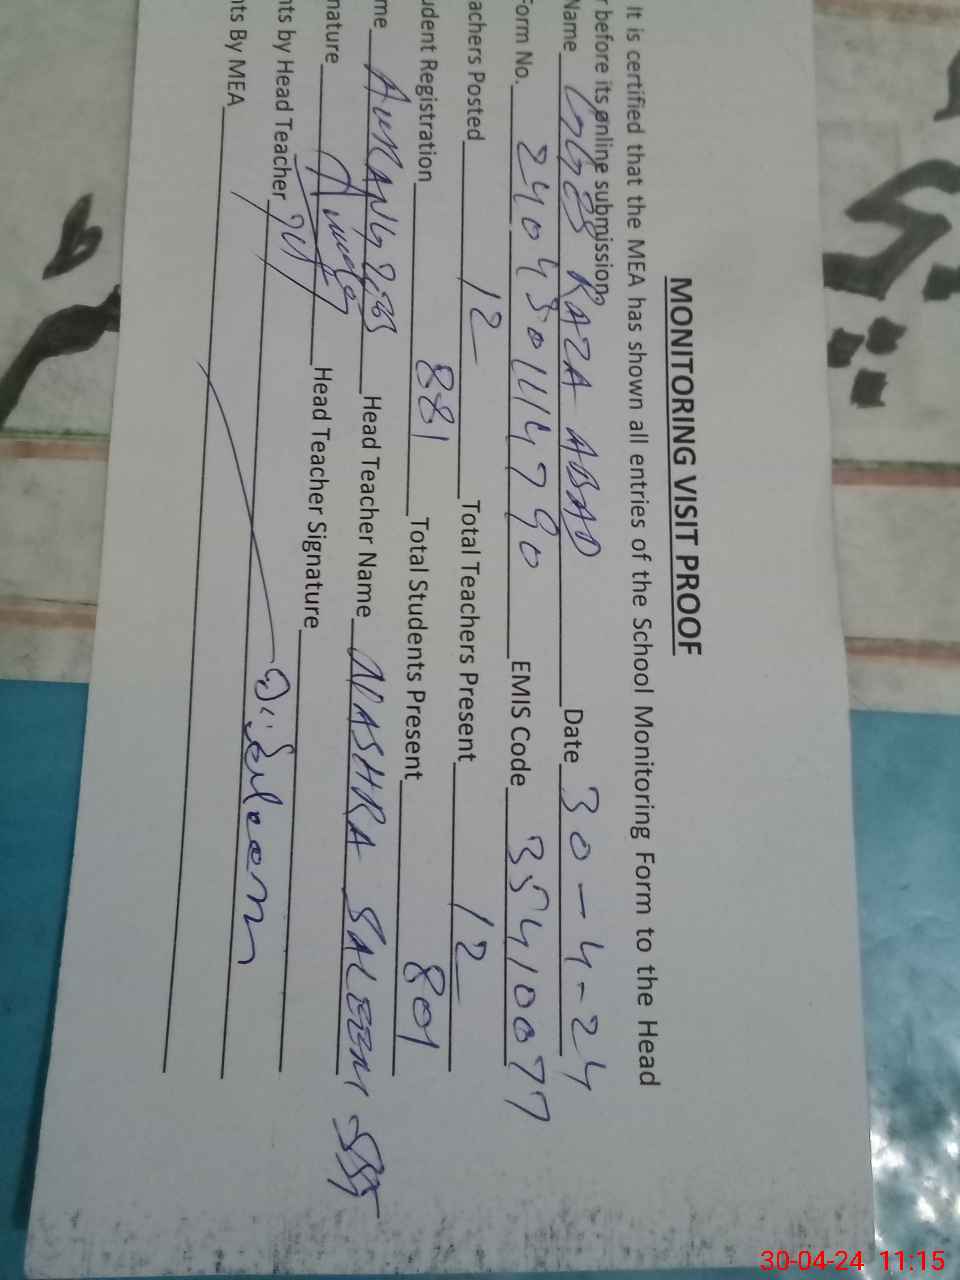 MONITORING VISIT PROOF
It is certified that the MEA has shown all entries of the School Monitoring Form to the Head
r before its online submission.
Name GGES RAZA ABAD Date 30-4-24
Form No. 2404301114790 EMIS Code 35410077
achers Posted 12 Total Teachers Present 12
udent Registration 881 Total Students Present 801
me AURANGZEB Head Teacher Name NASHRA SALEEM SST
nature Head Teacher Signature
nts by Head Teacher
nts By MEA
30-04-24 11:15